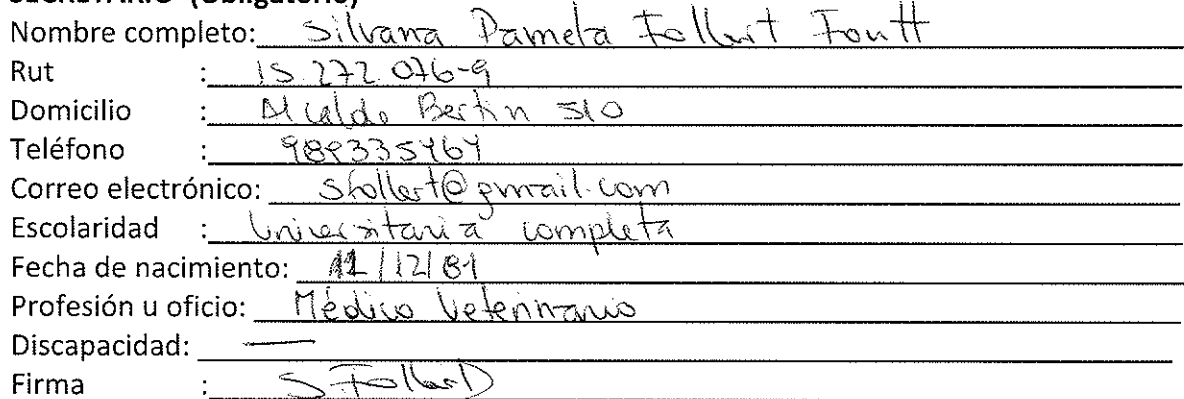 SECRETARIO (Obligatorio)
Nombre completo: Silvana Pamela Follert Foutt
Rut : 15.272.076-9
Domicilio : Alcalde Bertin 510
Teléfono : 989335464
Correo electrónico: sfollert@gmail.com
Escolaridad : Universitaria completa
Fecha de nacimiento: 12/12/81
Profesión u oficio: Médico Veterinario
Discapacidad: —
Firma : S Follert